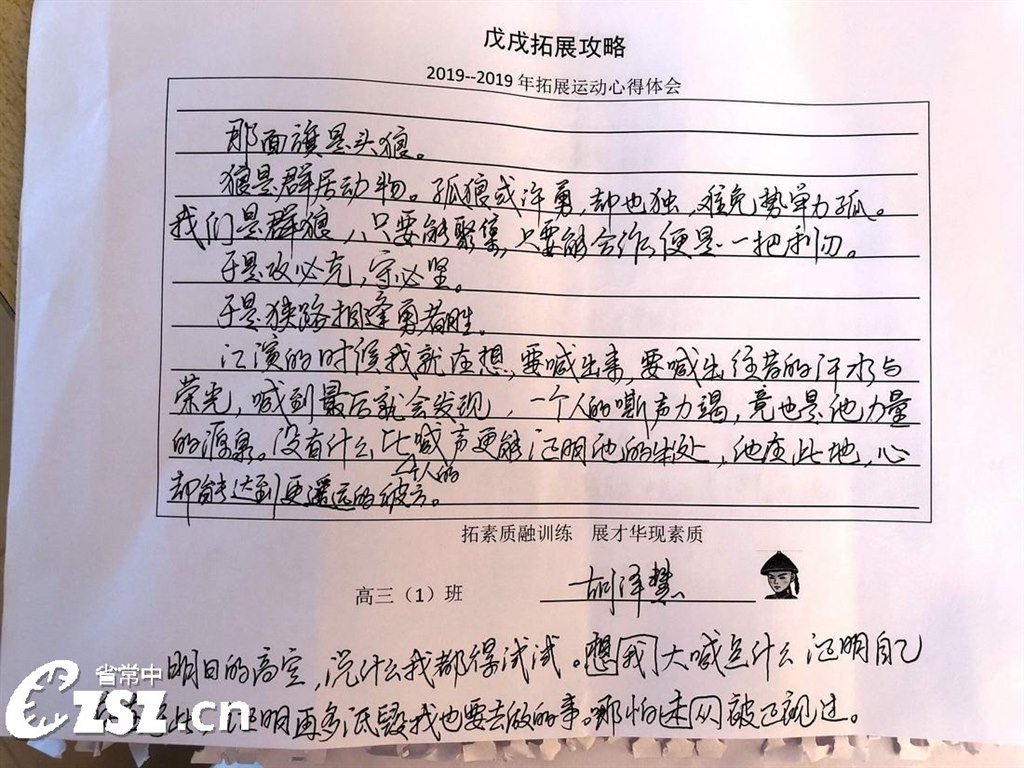 戊戌拓展攻略
2019--2019 年拓展运动心得体会
那面旗是头狼。
狼是群居动物。孤狼或许勇,却也独,难免势单力孤。
我们是群狼,只要能聚集,只要能合作,便是一把利刃。
于是攻必克,守必坚。
于是狭路相逢勇者胜。
汇演的时候我就在想,要喊出来,要喊出往昔的汗水与
荣光,喊到最后就会发现,一个人的嘶声力竭,竟也是他力量
的源泉。没有什么比喊声更能证明他的
他在此地,心
个人的
却能达到更遥远的彼方。
拓素质融训练 展才华现素质
高三(1)班
胡泽慧
明日的高空,说什么我都得试试。想我大喊点什么证明自己
证明再多诋毁我也要去做的事。哪怕
被
过。
省常中
CZSZ.cn